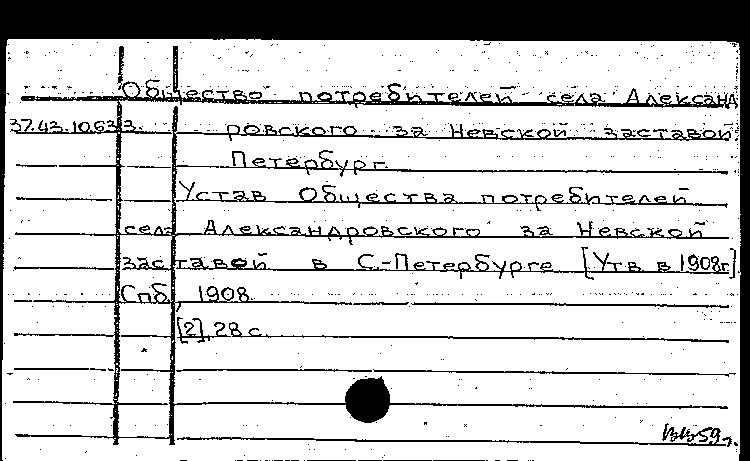 Общество потребителей села Александ
37.43.10.633. ровского за Невской заставой
Петербург.
Устав Общества потребителей
села Александровского за Невской
заставой в С.-Петербурге [Утв в 1908г]
Спб, 1908.
[2], 28 с.